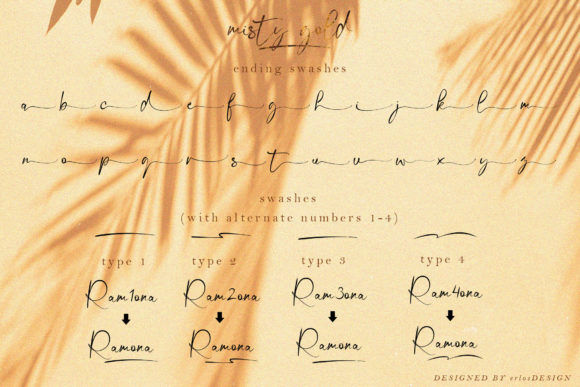 misty gold
ending swashes
a b c d e f g h i j k l m
n o p q r s t u v w x y z
swashes
(with alternate numbers 1-4)
type 1 type 2 type 3 type 4
Ram1ona Ram2ona Ram3ona Ram4ona
Ramona Ramona Ramona Ramona
DESIGNED BY erlosDESIGN